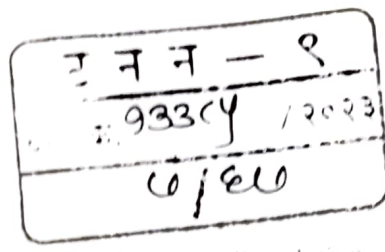 ट न न - १
१३३८५ /२०२३
७/६७